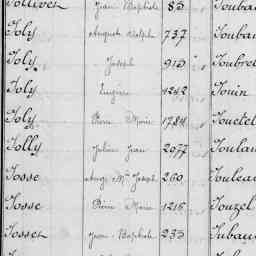 Jollivet Jean Baptiste 83
Joly Auguste Adolphe 737 Jouba
Joly Joseph 915 Joubre
Joly Eugène 1242 Jouin
Joly Pierre Marie 1784 Jouetel
Jolly Julien Jean 2077 Joula
Josse Ange Mie Joseph 260 Joulea
Josse Pierre Marie 1215 Jouzel
Josset Jean Baptiste 233 Jubau